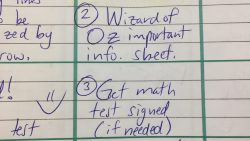 lines
be
② Wizard of
zed by
Oz important
row,
info. sheet.
!
③ Get math
test signed
test
(if needed)